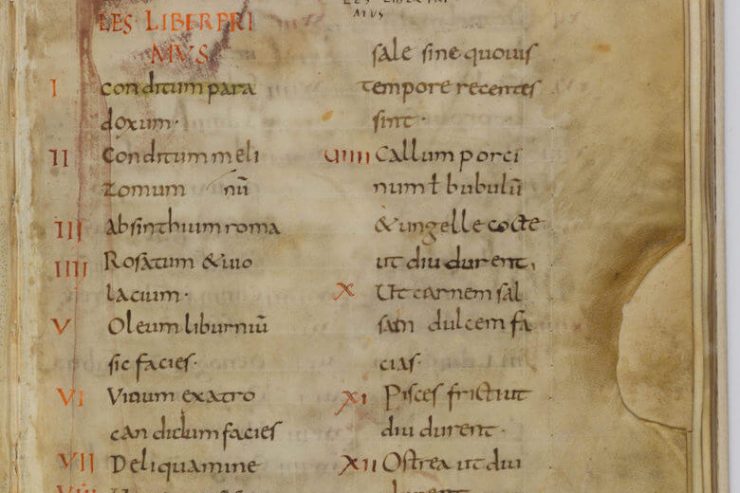 LES LIBER PRI
MVS
I conditum para
doxum·
II Conditum meli
zomum nū
III absinthium roma
IIII Rosatum & uio
lacium·
V Oleum liburniū
sic facies·
VI Vinum exatro
candidum facies
VII Deliquamine
LES LIBER PRI
MVS
sale sine quouis
tempore recentes
sint·
VIIII Callum porci
num ł bubulū
& ungelle cocte
ut diu durent,
X Ut carnem sal
sam dulcem fa
cias·
XI Pisces frictiut
diu durent·
XII Ostrea ut diu